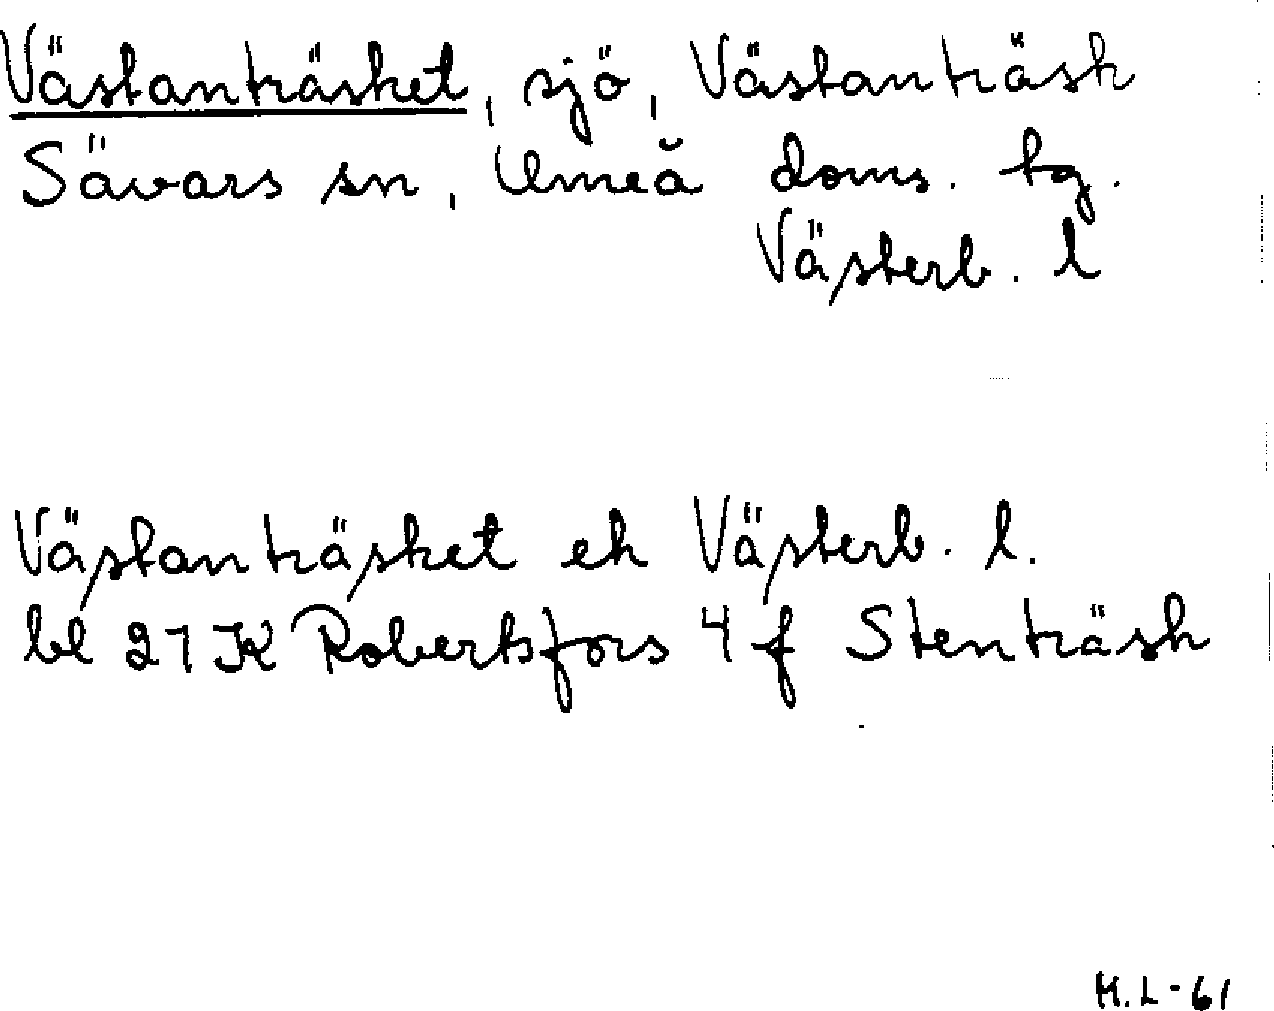 Västanträsket, sjö, Västanträsk
Sävars sn, Umeå doms. tg.
Västerb. l
Västanträsket ek Västerb. l.
bl 21 K Robertsfors 4 f Stenträsk
H.L-61